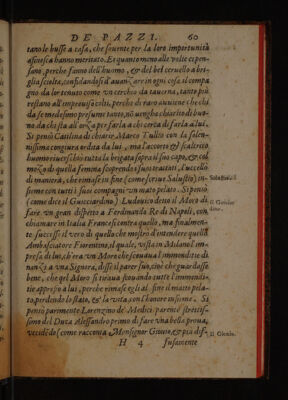 DE PAZZI. 60
tano le busse a casa, che souente per la loro importunità
a
hanno meritato. Et quanto meno alle volte ci pen-
sano, perche fanno dell'huomo, & del bel ceruello a bri-
glia sciolta, confidandosi d'
are in ogni cosa il compa-
gno da lor tenuto come vn cerchio da tauerna, tanto più
restano all'improuiso colti, perche di raro auuiene che chi
da se medesimo presume tanto, nō uenghe chiarito di buo-
no da chi sta all'
per farla a chi cerca di farla a lui.
Si pensò Catilina di chiarir Marco Tullio con la solen-
nissima congiura ordita da lui, ma l'accorto & scaltrito
huomo riuersciò tutta la brigata sopra il suo capo, & col
mezo di quella femina scoprendo i suoi trattati, l'uccellò
di maniera, che rimase in fine (come scriue Salustio) in-
Salustio.
sieme con tutti i suoi compagni vn mato pelato. Si pensò
(come dice il Guicciardino) Ludouico detto il Moro di
Il Guiciar
dino.
fare vn gran dispetto a Ferdinando Re di Napoli, con
chiamare in Italia Francesi contra quello, ma finalmen-
te successe il vero di quello che mostrò d'intendere quello
Ambasciatore Fiorentino, il quale, vista in Milano l'im-
presa de lui, ch'era vn Moro che scouaua l'immonditie di
a vna Signora, disse il parer suo, cioè che guardasse
bene, che quel Moro si tiraua scouando tutte l'immondi-
tie appresso a lui, perche rimase egli al fine il mato pela-
to, perdendo lo stato, & la vita, con l'honore insieme. Si
pensò parimente Lorenzino de' Medici parente strettis-
simo del Duca Alessandro primo di fare vna bella proua,
vccidēdo (come racconta Monsignor Giouio, & più dif-
Il Giouio.
H 4 fusamente